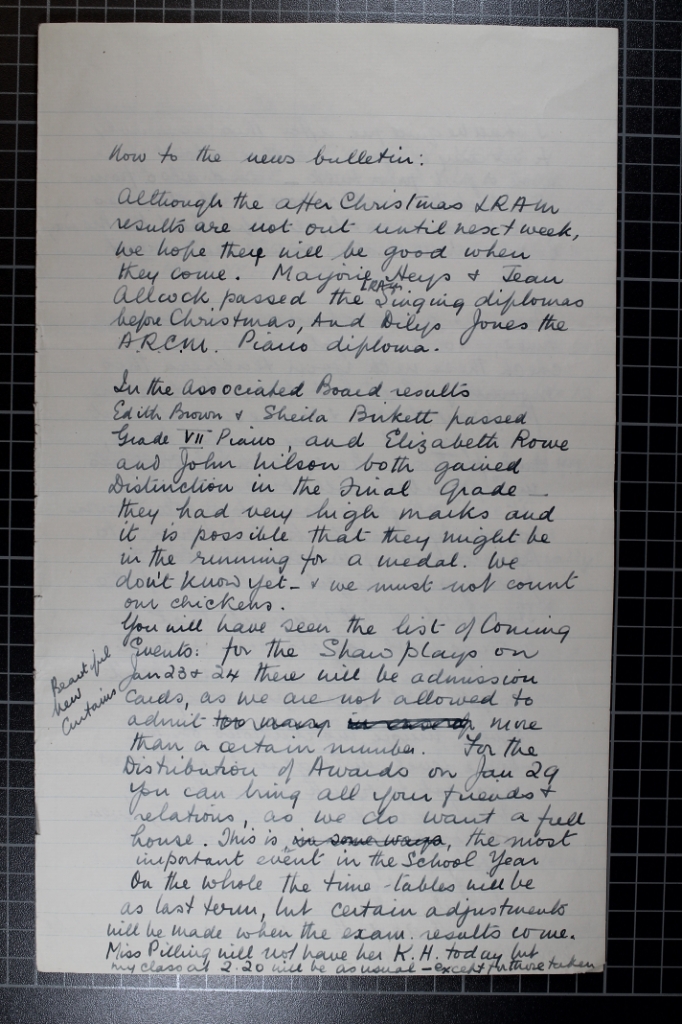 Now to the news bulletin:
Although the after Christmas LRAM
results are not out until next week,
we hope they will be good when
they come. Marjorie Heys & Jean
Allcock passed the LRAM Singing diplomas
before Christmas, And Dilys Jones the
A.R.C.M. Piano diploma.
In the Associated Board results
Edith Brown & Sheila Birkett passed
Grade VII Piano, and Elizabeth Rowe
and John Wilson both gained
Distinction in the Final Grade -
they had very high marks and
it is possible that they might be
in the running for a medal. We
don't know yet - & we must not count
our chickens.
You will have seen the list of Coming
Events: for the Shaw plays on
Jan 23 & 24 there will be admission
Cards, as we are not allowed to
admit too many in excess of more
than a certain number. For the
Distribution of Awards on Jan 29
you can bring all your friends &
relations, as we do want a full
house. This is, in some ways, the most
important event in the School Year
On the whole the time-tables will be
as last term, but certain adjustments
will be made when the exam. results come.
Miss Pilling will not have her K.H. today but
my class at 2.20 will be as usual - except for those taken
Beautiful
new
Curtains